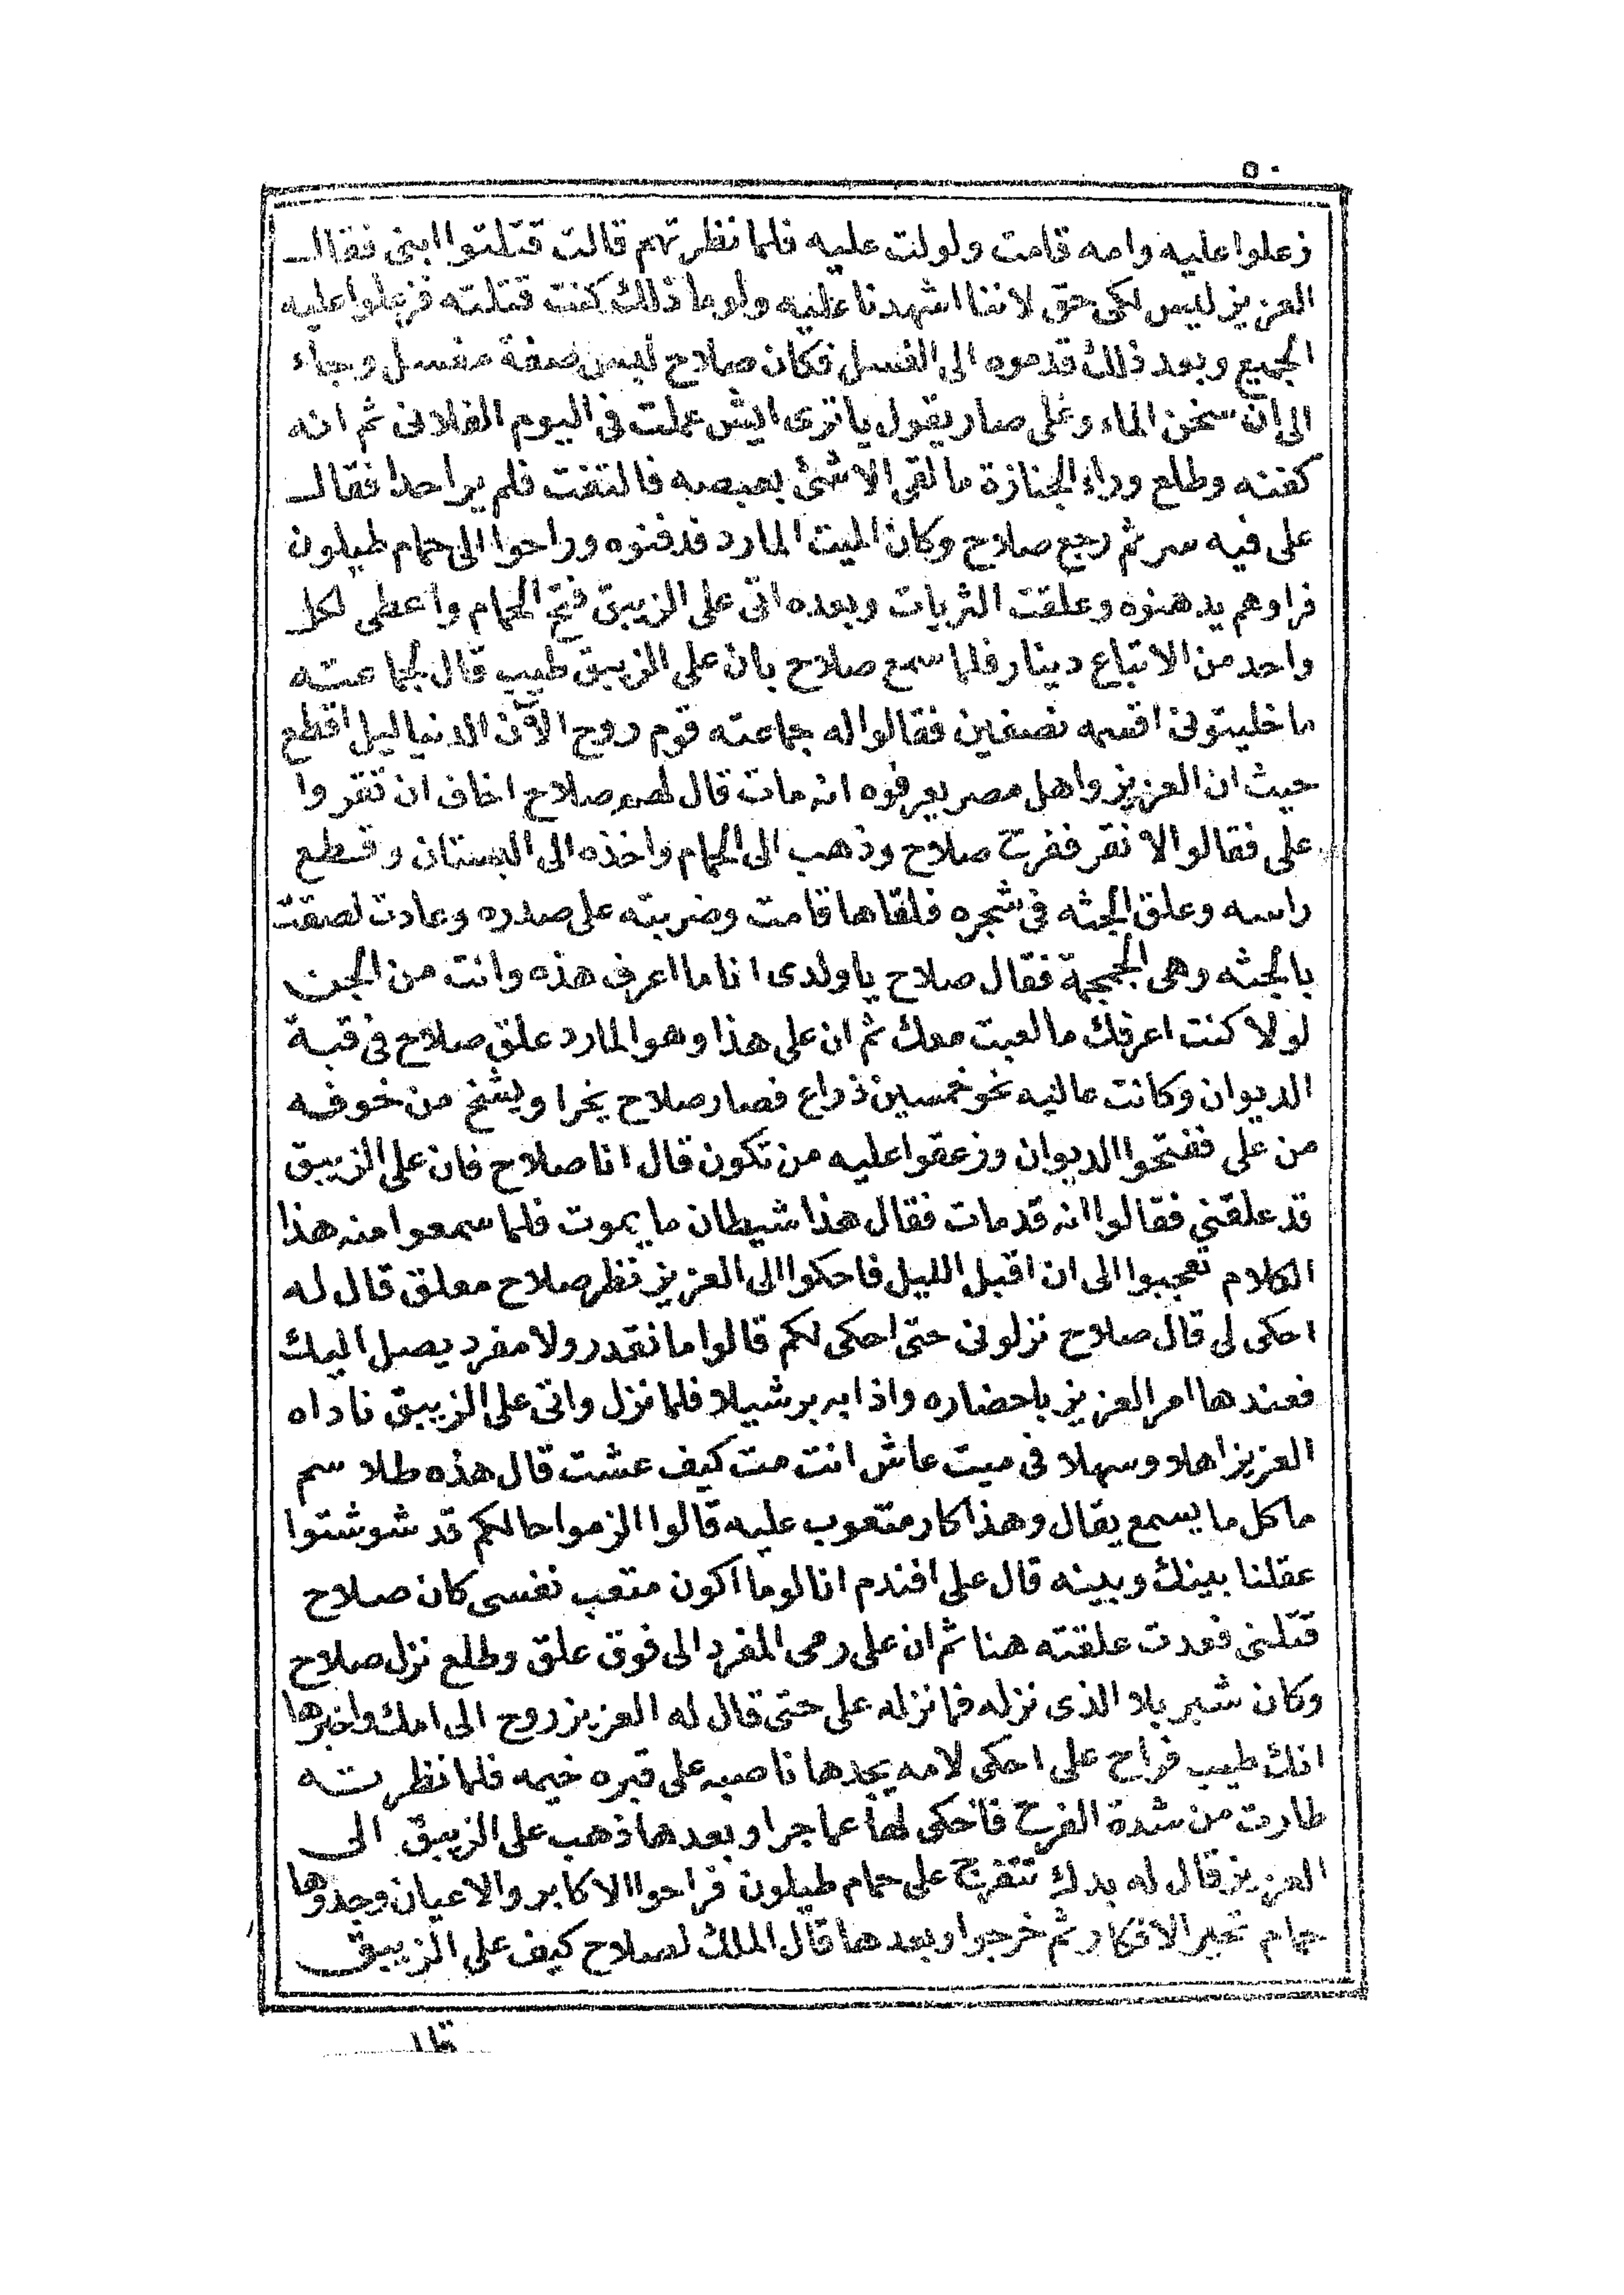 ٥٠
زعلوا عليه وامه قامت ولولت عليه فلما نظرتهم قالت قتلتوا ابنى فقال
العزيز ليس لكى حق لاننا اشهدنا عليه ولو ما ذلك كنت قتلته فزعلوا عليه
الجميع وبعد ذلك قدموه الى الغسل فكان صلاح لبس صفة مغسل وجاء
الى ان سخن الماء وغلى صار يقول يا ترى ايش عملت فى اليوم الفلانى ثم انه
كفنه وطلع وراء الجنازة ما لقى الا شئ بعبصه فالتفت فلم ير احدا فقال
على فيه سر ثم رجع صلاح وكان الميت المارد فدفنوه وراحوا الى حمام طيلون
فراوهم يدهنوه وعلقت الثريات وبعده اتى على الزيبق فتح الحمام واعطى لكل
واحد من الاتباع دينار فلما سمع صلاح بان على الزيبق طيب قال لجماعته
ما خليتونى اقسمه نصفين فقالوا له جماعته قوم روح الآن الدنيا ليل اقطع
حيث ان العزيز واهل مصر يعرفوه انه مات قال لهم صلاح اخاف ان تقروا
على فقالوا لا نقر ففرح صلاح وذهب الى الحمام واخذه الى البستان وقطع
راسه وعلق الجثه فى شجره فلقاها قامت وضربته على صدره وعادت لصقت
بالجثه وهى الجمجمة فقال صلاح يا ولدى انا ما اعرف هذه وانت من الجن
لولا كنت اعرفك ما لعبت معك ثم ان على هذا وهو المارد علق صلاح فى قبة
الديوان وكانت عاليه نحو خمسين ذراع فصار صلاح يخرا ويشخ من خوفه
من على ففتحوا الديوان وزعقوا عليه من تكون قال انا صلاح فان على الزيبق
قد علقنى فقالوا انه قد مات فقال هذا شيطان ما يموت فلما سمعوا منه هذا
الكلام تعجبوا الى ان اقبل الليل فاحكوا الى العزيز نظر صلاح معلق قال له
احكى لى قال صلاح نزلونى حتى احكى لكم قالوا ما نقدر ولا مفرد يصل اليك
فعندها امر العزيز باحضاره واذا به بر شيبلا فلما نزل واتى على الزيبق ناداه
العزيز اهلا وسهلا فى ميت عاش انت مت كيف عشت قال هذه طلاسم
ما كل ما يسمع يقال وهذا كار متعوب عليه قالوا الزموا حالكم قد شوشتوا
عقلنا بينك وبينه قال على افندم انا لو ما اكون متعب نفسى كان صلاح
قتلنى فعدت علقته هنا ثم ان على رمى المفرد الى فوق علق وطلع نزل صلاح
وكان شبر بلا الذى نزله فما نزله على حتى قال له العزيز روح الى امك واخبرها
انك طيب فراح على احكى لامه يجدها ناصبه على قبره خيمه فلما نظرته
طارت من شدة الفرح فاحكى لها عما جرا وبعدها ذهب على الزيبق الى
العزيز قال له بدك تتفرج على حمام طيلون فراحوا الاكابر والاعيان وجدوها
حمام تحير الافكار ثم خرجوا وبعدها قال الملك لصلاح كيف على الزيبق